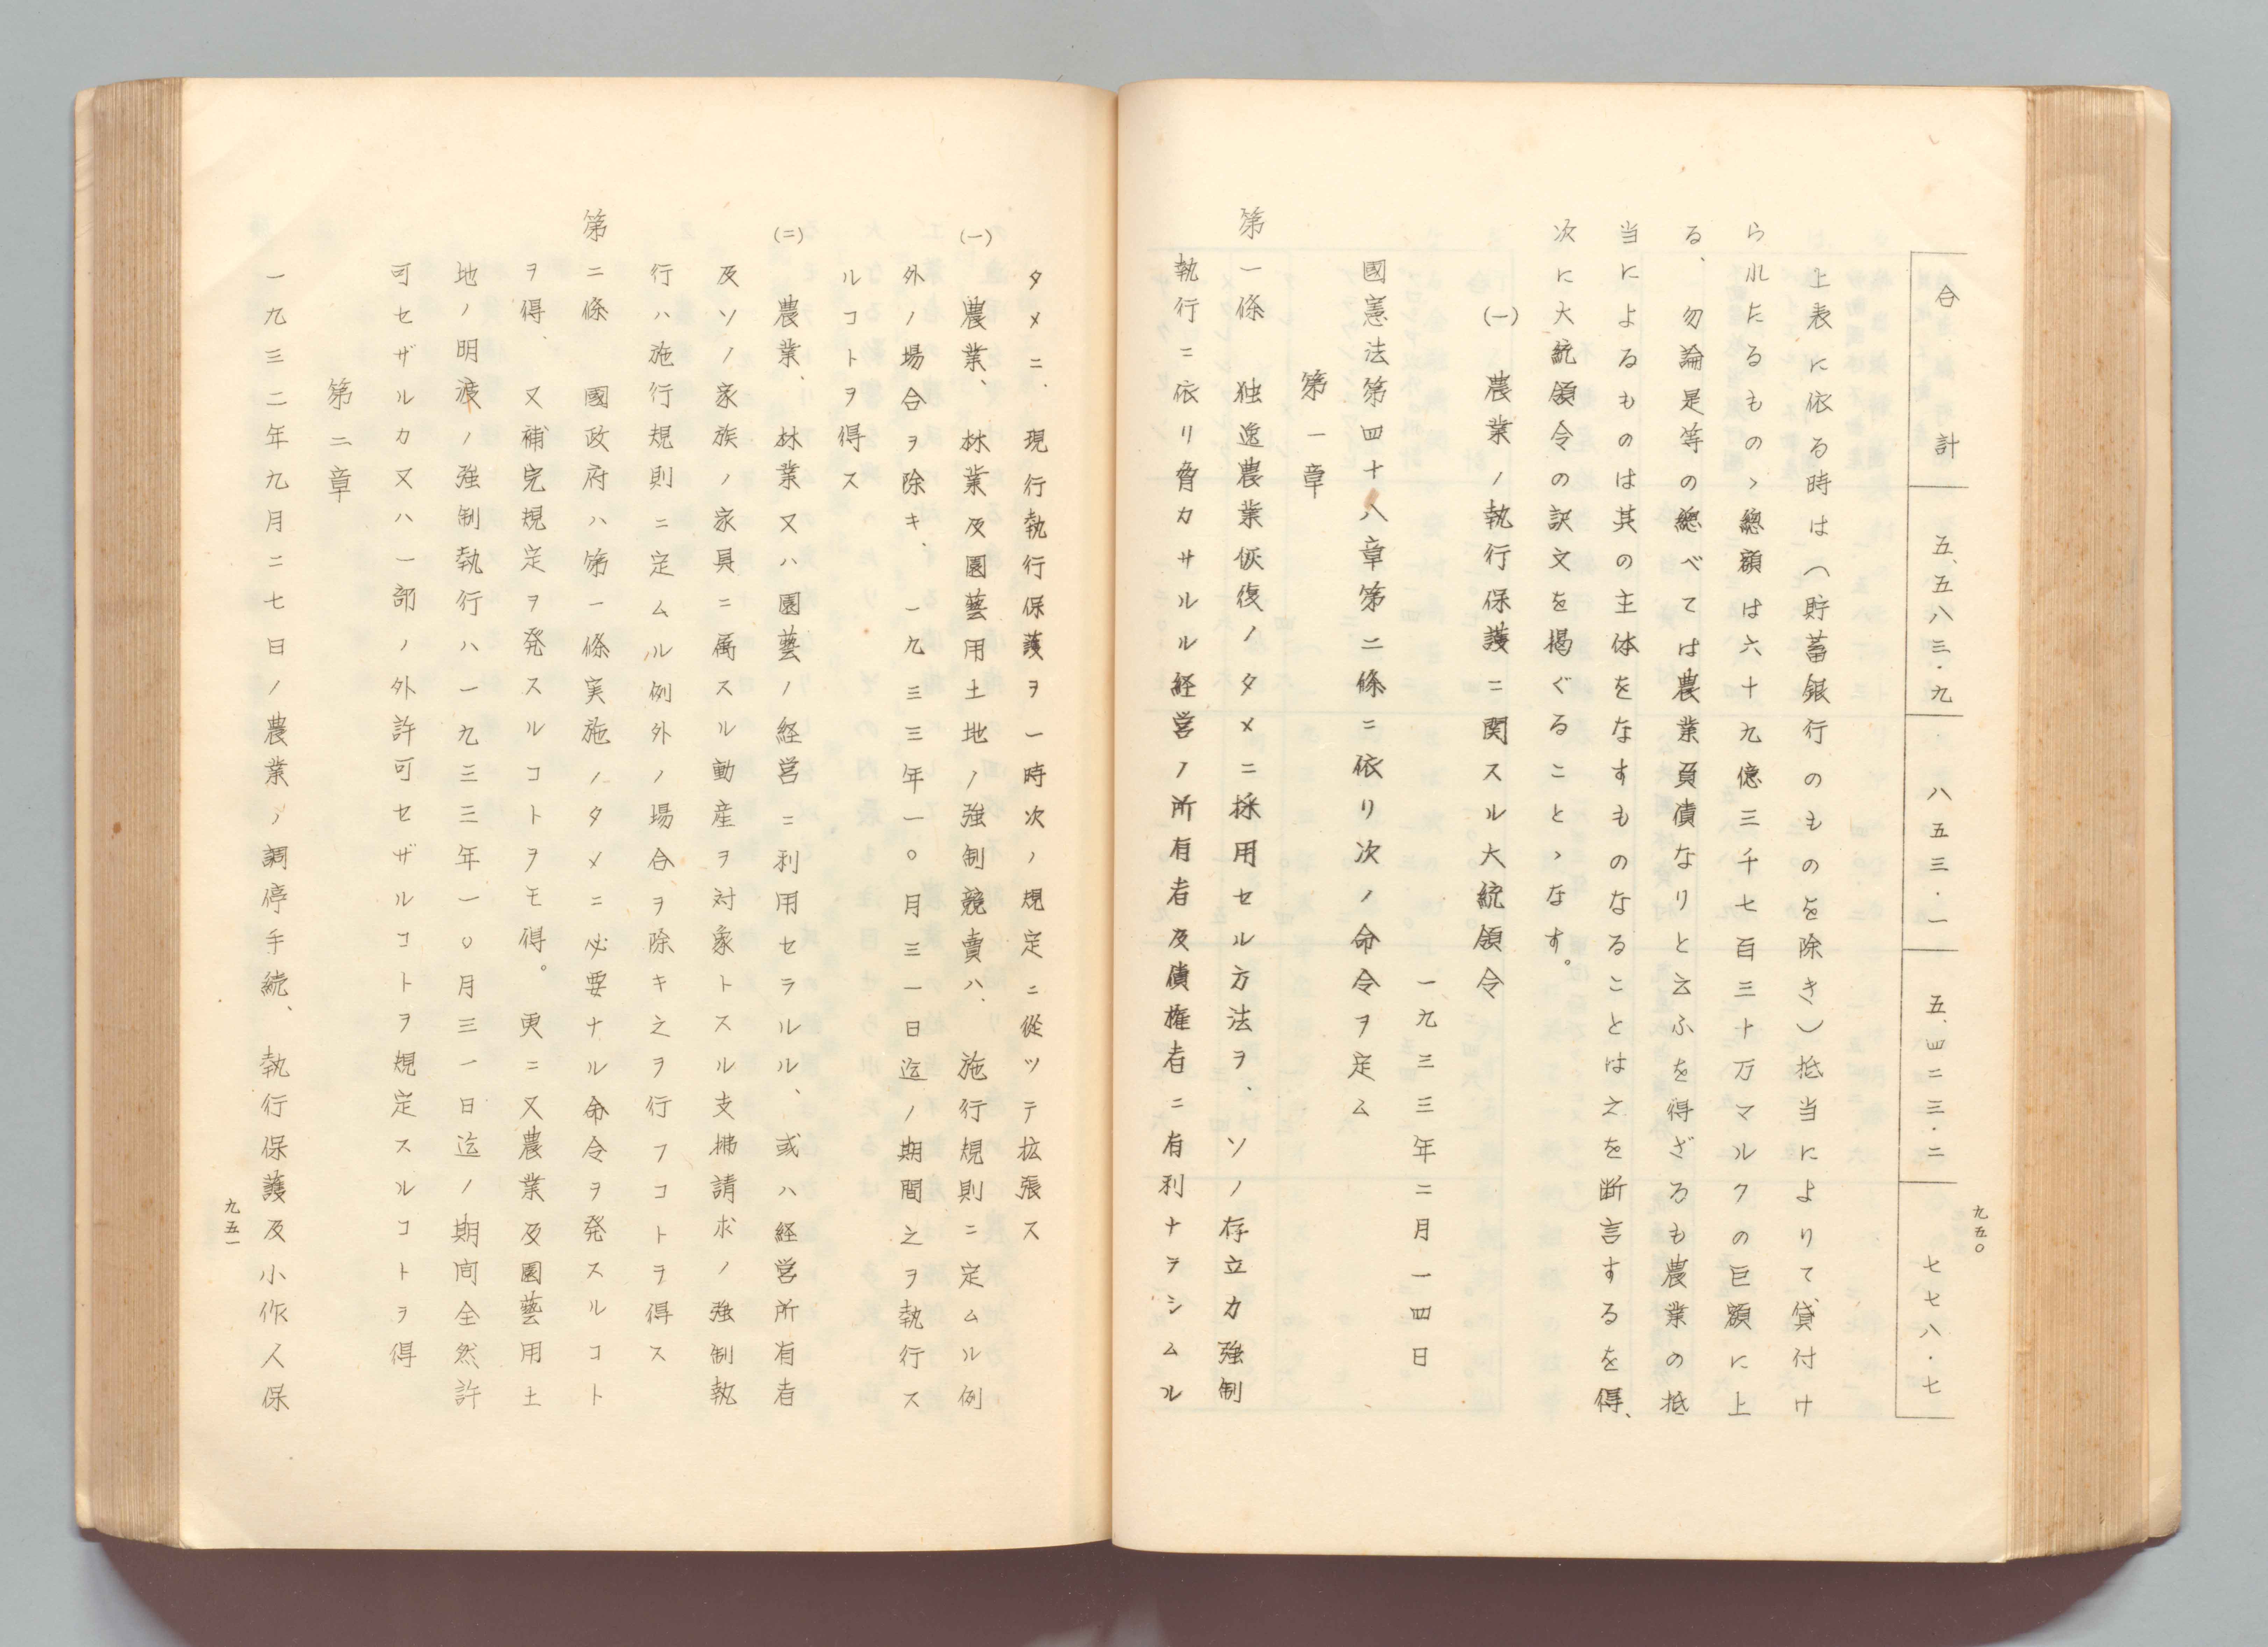 合計 五、五八三・九 八五三・一 五、四二三・二 七七八・七
上表に依る時は（貯蓄銀行のものを除き）抵当によりて貸付け
られたるものゝ總額は六十九億三千七百三十万マルクの巨額に上
る、勿論是等の總べては農業負債なりと云ふを得ざるも農業の抵
当によるものは其の主体をなすものなることは之を断言するを得、
次に大統領令の訳文を揭ぐることゝなす。
(一) 農業ノ執行保護ニ関スル大統領令
一九三三年二月一四日
國憲法第四十八章第二條ニ依リ次ノ命令ヲ定ム
第一章
第一條 独逸農業恢復ノタメニ採用セル方法ヲ、ソノ存立カ強制
執行ニ依リ脅カサルル経営ノ所有者及債権者ニ有利ナラシムル
九五〇
タメニ、現行執行保護ヲ一時次ノ規定ニ從ツテ拡張ス
(一) 農業、林業及園藝用土地ノ強制競賣ハ、施行規則ニ定ムル例
外ノ場合ヲ除キ、一九三三年一〇月三一日迄ノ期間之ヲ執行ス
ルコトヲ得ス
(二) 農業、林業又ハ園藝ノ経営ニ利用セラルル、或ハ経営所有者
及ソノ家族ノ家具ニ属スル動産ヲ対象トスル支拂請求ノ強制執
行ハ施行規則ニ定ムル例外ノ場合ヲ除キ之ヲ行フコトヲ得ス
第二條 國政府ハ第一條実施ノタメニ必要ナル命令ヲ発スルコト
ヲ得、又補完規定ヲ発スルコトヲモ得。更ニ又農業及園藝用土
地ノ明渡ノ強制執行ハ一九三三年一〇月三一日迄ノ期间全然許
可セザルカ又ハ一部ノ外許可セザルコトヲ規定スルコトヲ得
第二章
一九三二年九月二七日ノ農業ノ調停手続、執行保護及小作人保
九五一